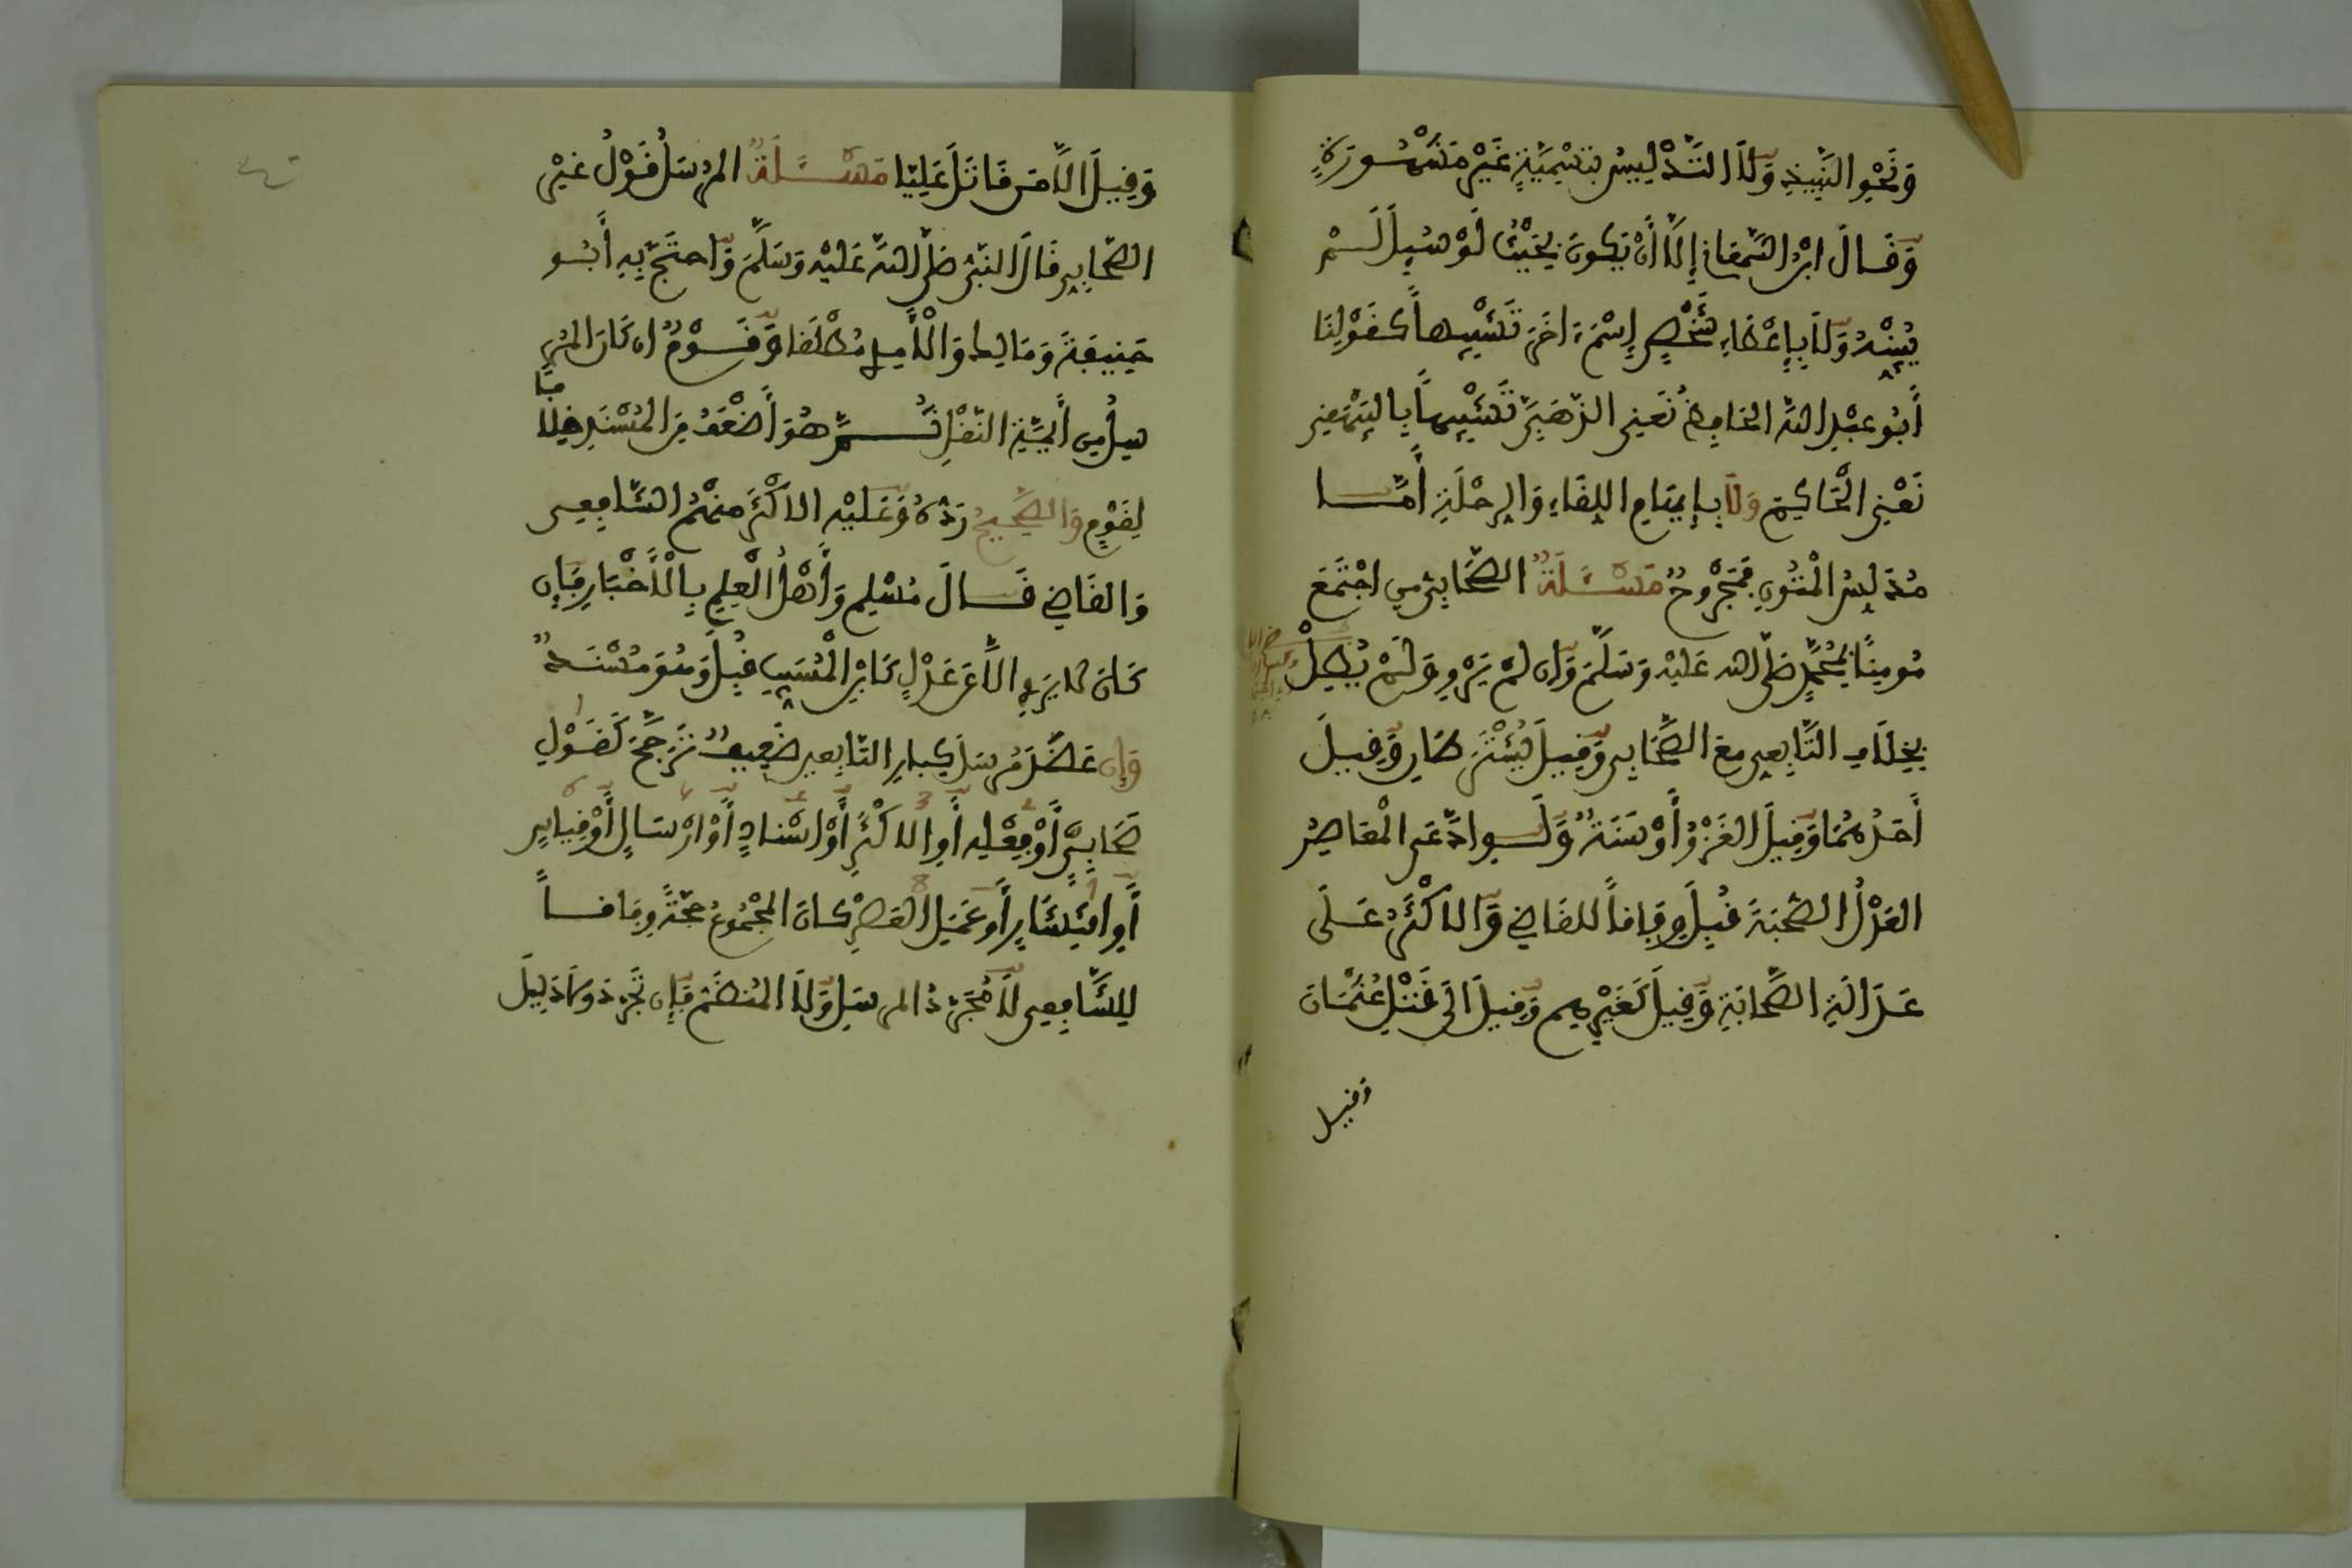 وَنَحْوِ النَّبِيذِ وَلَا التَّدْلِيسُ بِتَسْمِيَةٍ غَيْرِ مَشْهُورَةٍ
وَقَالَ ابْنُ السَّمْعَانِي إِلَّا أَنْ يَكُونَ بِحَيْثُ لَوْ سُئِلَ لَمْ
يُبَيِّنْهُ وَلَا بِإِعْطَاءِ شَخْصٍ إِسْمَ آخَرَ تَشْبِيهاً كَقَوْلِنَا
أَبُو عَبْدِ اللهِ الْحَافِظُ نَعْنِي الذَّهَبِيَّ تَشْبِيهاً بِالْبَيْهَقِي
نَعْنِي الْحَاكِمَ وَلَا بِإِيهَامِ اللِّقَاءِ وَالرِّحْلَةِ أَمَّا
مُدَلِّسُ الْمُتُونِ فَمَجْرُوحٌ مَسْئَلَةٌ الصَّحَابِيُّ مَنِ اجْتَمَعَ
مُومِنًا بِمُحَمَّدٍ صَلَّى اللهُ عَلَيْهِ وَسَلَّمَ وَإِنْ لَمْ يَرْوِ وَلَمْ يُطِلْ
بِخِلَافِ التَّابِعِي مَعَ الصَّحَابِي وَقِيلَ يُشْتَرَطَانِ وَقِيلَ
أَحَدُهُمَا وَقِيلَ الْغَزْوُ أَوْ سَنَةٌ وَلَوِ ادَّعَى الْمُعَاصِرُ
الْعَدْلُ الصُّحْبَةَ قُبِلَ وِفَاقاً لِلْقَاضِي وَالْأَكْثَرُ عَلَى
عَدَالَةِ الصَّحَابَةِ وَقِيلَ كَغَيْرِهِم وَقِيلَ إِلَى قَتْلِ عُثْمَانَ
وقيل
وَقِيلَ إِلَّا مَن قَاتَلَ عَلِيًّا مَسْئَلَةٌ الْمُرْسَلُ قَوْلُ غَيْرِ
الصَّحَابِي قَالَ النَّبِيُّ صَلَّى اللهُ عَلَيْهِ وَسَلَّمَ وَاحْتَجَّ بِهِ أَبُو
حَنِيفَةَ وَمَالِكٌ وَالْآمِدِي مُطْلَقًا وَقَوْمٌ إِن كَانَ الْمُرْ
سِلُ مِن أَئِمَّةِ النَّقْلِ ثُمَّ هُوَ أَضْعَفُ مِنَ الْمُسْنَدِ خِلَافًا
لِقَوْمٍ وَالصَّحِيحُ رَدُّهُ وَعَلَيْهِ الْأَكْثَرُ مِنْهُمُ الشَّافِعِي
وَالْقَاضِي قَالَ مُسْلِم وَأَهْلُ الْعِلْمِ بِالْأَخْبَارِ فَإِن
كَانَ لَا يَرْوِي إِلَّا عَن عَدْلٍ كَابْنِ الْمُسَيِّبِ قُبِلَ وَهُوَ مُسْنَدٌ
وَإِن عَضَدَ مُرْسَلَ كِبَارِ التَّابِعِينَ ضَعِيفٌ يُرَجَّحُ كَقَوْلِ
صَحَابِيٍّ أَوْ فِعْلِهِ أَوِ الْأَكْثَرِ أَوْ إِسْنَادٍ أَوْ إِرْسَالٍ أَوْ قِيَاسٍ
أَوِ انْتِشَارٍ أَو عَمَلِ الْعَصْرِ كَانَ الْمَجْمُوعُ حُجَّةً وِفَاقاً
لِلشَّافِعِي لَا مُجَرَّدُ الْمُرْسَلِ وَلَا الْمُنْضَمُّ فَإِن تَجَرَّدَ وَلَا دَلِيلَ